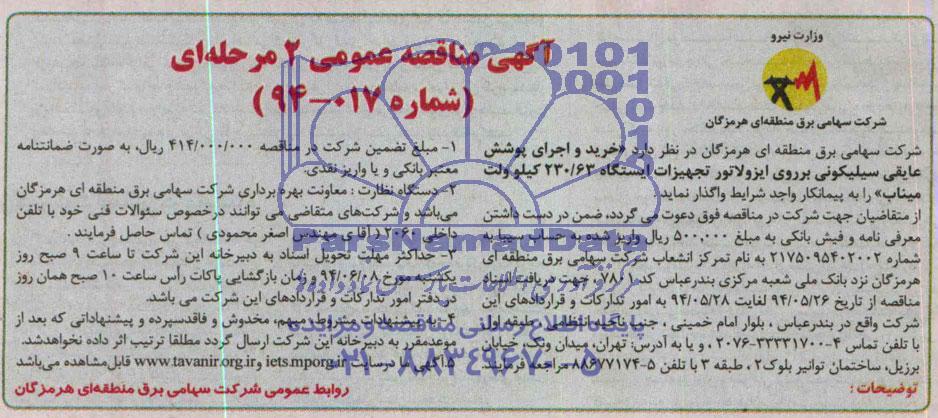 وزارت نیرو
شرکت سهامی برق منطقه‌ای هرمزگان
آگهی مناقصه عمومی ۲ مرحله‌ای
(شماره ۰۱۷-۹۴)
شرکت سهامی برق منطقه ای هرمزگان در نظر دارد «خرید و اجرای پوشش
عایقی سیلیکونی برروی ایزولاتور تجهیزات ایستگاه ۲۳۰/۶۳ کیلو ولت
میناب» را به پیمانکار واجد شرایط واگذار نماید.
از متقاضیان جهت شرکت در مناقصه فوق دعوت می گردد، ضمن در دست داشتن
معرفی نامه و فیش بانکی به مبلغ ۵۰۰,۰۰۰ ریال واریز شده به حساب سیبا به
شماره ۲۱۷۵۰۹۵۴۰۲۰۰۲ به نام تمرکز انشعاب شرکت سهامی برق منطقه ای
هرمزگان نزد بانک ملی شعبه مرکزی بندرعباس کد جهت دریافت اسناد
مناقصه از تاریخ ۹۴/۰۵/۲۶ لغایت ۹۴/۰۵/۲۸ به امور تدارکات و قراردادهای این
شرکت واقع در بندرعباس ، بلوار امام خمینی ، جنب ناحیه انتظامی ، طبقه اول
با تلفن تماس ۴-۳۳۳۳۱۷۰۰-۰۷۶ ، و یا به آدرس: تهران، میدان ونک، خیابان
برزیل، ساختمان توانیر بلوک۲ ، طبقه ۳ با تلفن ۵-۸۸۶۷۷۱۷۴ مراجعه فرمایند.
توضیحات :
۱- مبلغ تضمین شرکت در مناقصه ۴۱۴/۰۰۰/۰۰۰ ریال، به صورت ضمانتنامه
معتبر بانکی و یا واریز نقدی.
۲- دستگاه نظارت : معاونت بهره برداری شرکت سهامی برق منطقه ای هرمزگان
می‌باشد و شرکت‌های متقاضی می توانند درخصوص سئوالات فنی خود با تلفن
داخلی ۲۰۶۰ ( آقای مهندس اصغر محمودی ) تماس حاصل فرمایند .
۳- حداکثر مهلت تحویل اسناد به دبیرخانه این شرکت تا ساعت ۹ صبح روز
یکشنبه مورخ ۹۴/۰۶/۰۸ و زمان بازگشایی پاکات رأس ساعت ۱۰ صبح همان روز
در دفتر امور تدارکات و قراردادهای این شرکت می باشد.
۴- به پیشنهادات مشروط، مبهم، مخدوش و فاقدسپرده و پیشنهاداتی که بعد از
موعدمقرر به دبیرخانه این شرکت ارسال گردد مطلقا ترتیب اثر داده نخواهدشد.
۵. آگهی ما درسایت iets.mporg.ir و www.tavanir.org.ir قابل‌مشاهده می‌باشد
روابط عمومی شرکت سهامی برق منطقه‌ای هرمزگان
ParsNamadData
پایگاه اطلاع رسانی مناقصه و مزایده
۰۲۱-۸۸۳۴۹۶۷۰-۵